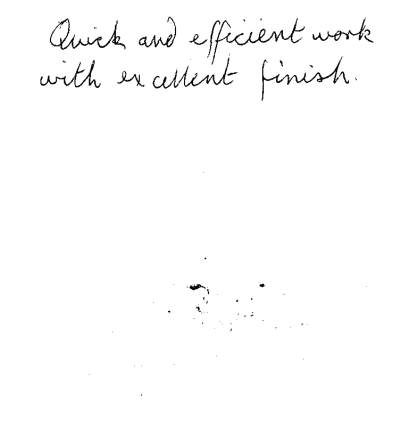 Quick and efficient work
with excellent finish.